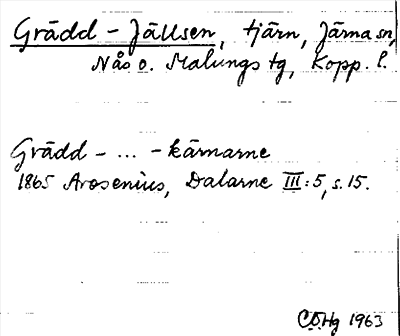 Grädd - Jällsen, tjärn, Järna sn,
Nås o. Malungs tg, Kopp. l.
Grädd - ... - kärnarne
1865 Arosenius, Dalarne III:5, s. 15.
CDHg 1963